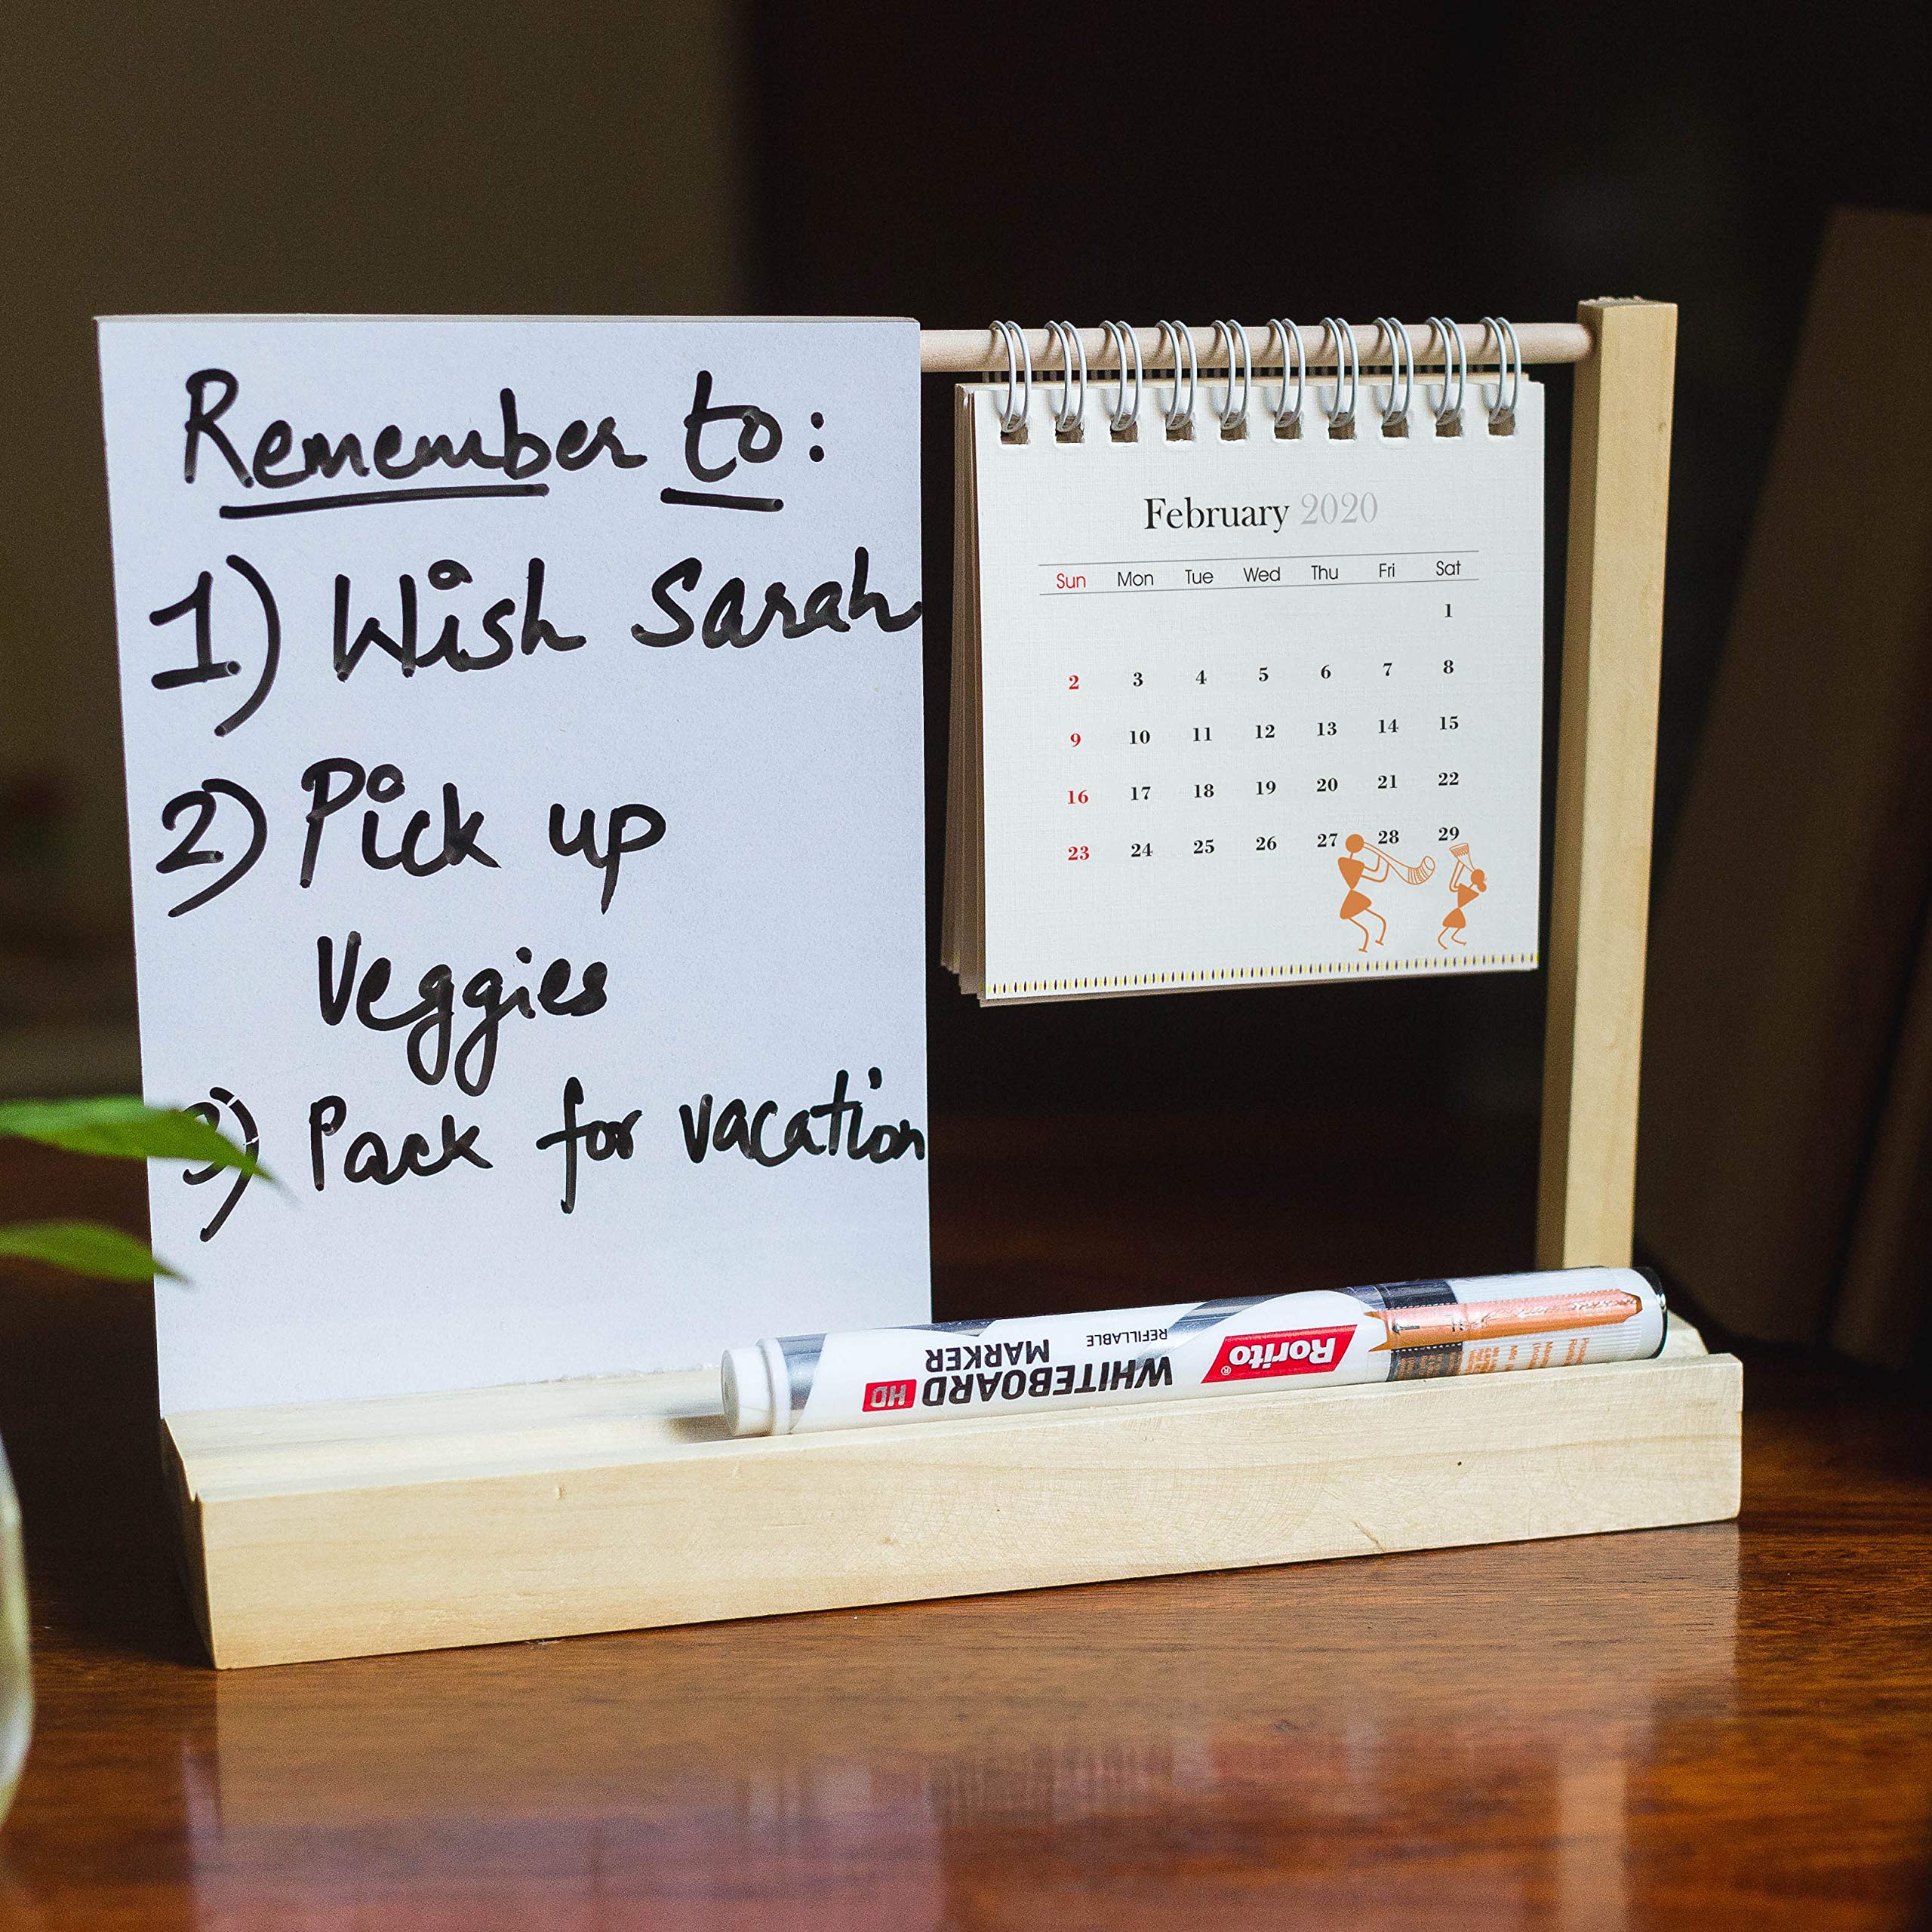 Remember to:
1) Wish Sarah
2) Pick up
Veggies
3) Pack for vacation
February 2020
Sun Mon Tue Wed Thu Fri Sat
1
2 3 4 5 6 7 8
9 10 11 12 13 14 15
16 17 18 19 20 21 22
23 24 25 26 27 28 29
Rorito®
WHITEBOARD HD
MARKER
REFILLABLE